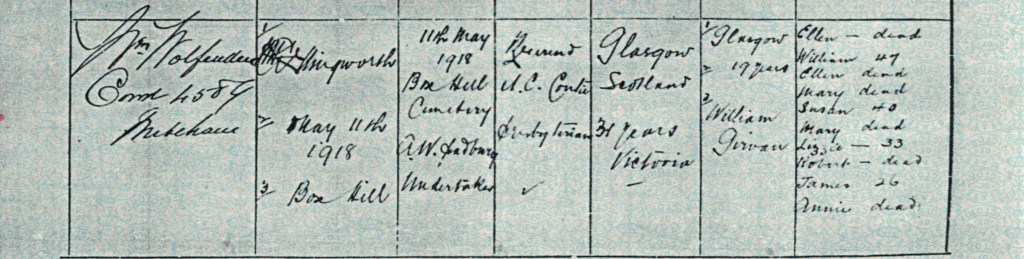 Wm Wolfenden
Cond 4584
Mitcham
1/ Illingworth
2/ May 11th
1918
3/ Box Hill
11th May
1918
Box Hill
Cemetery
A.W. Padbury
Undertaker
Reverend
A.C.
Presbyterian
✓
Glasgow
Scotland
31 years
Victoria
—
1/ Glasgow
2/ 19 years
3/ William
Girvan
Ellen — dead
William 47
Ellen dead
Mary dead
Susan 40
Mary dead
Lizzie — 33
Robert — dead
James 26
Annie dead